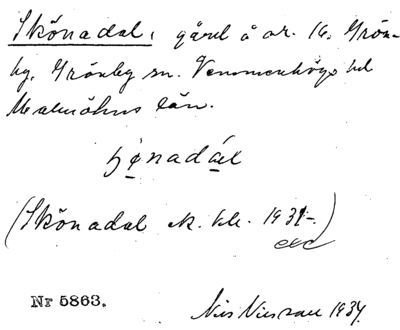 Skönadal, gård å nr. 16. Grön-
by, Grönby sn. Vemmenhögs hd
Malmöhus län.
ɧønadál
(Skönadal ek. kbl. 1931-)
Nr 5863.
Nils Nilsson 1934.